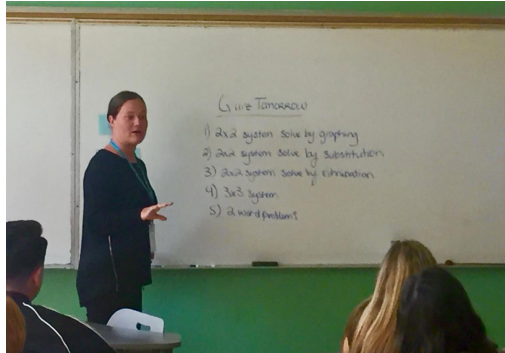 Quiz Tomorrow
1) 2x2 system solve by graphing
2) 2x2 system solve by substitution
3) 2x2 system solve by elimination
4) 3x3 system
5) 2 word problems